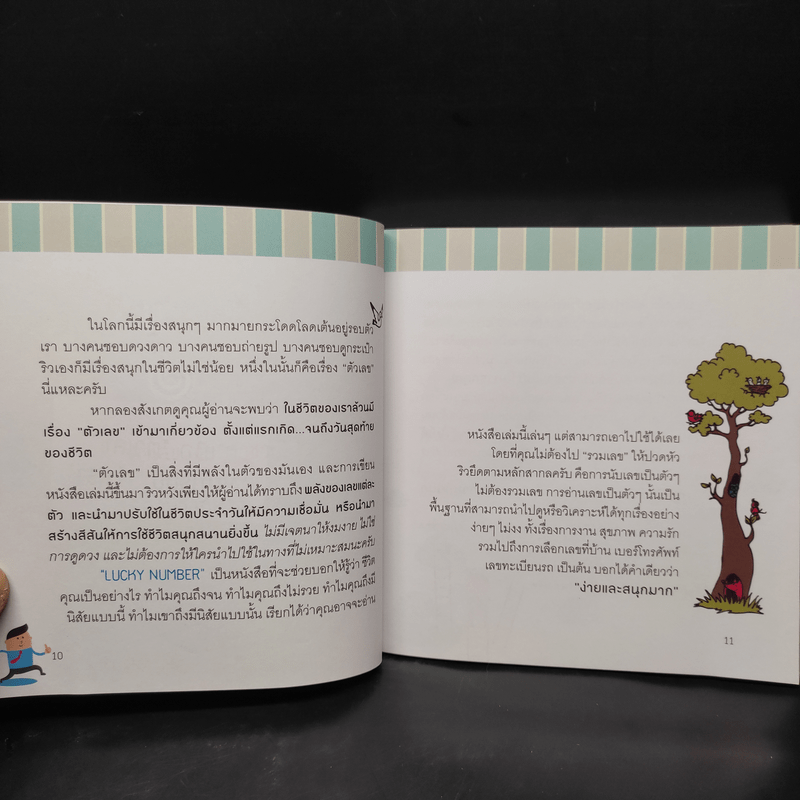 ในโลกนี้มีเรื่องสนุกๆ มากมายกระโดดโลดเต้นอยู่รอบตัว
เรา บางคนชอบดวงดาว บางคนชอบถ่ายรูป บางคนชอบดูกระเป๋า
ริวเองก็มีเรื่องสนุกในชีวิตไม่ใช่น้อย หนึ่งในนั้นก็คือเรื่อง "ตัวเลข"
นี่แหละครับ
หากลองสังเกตดูคุณผู้อ่านจะพบว่า ในชีวิตของเราล้วนมี
เรื่อง "ตัวเลข" เข้ามาเกี่ยวข้อง ตั้งแต่แรกเกิด...จนถึงวันสุดท้าย
ของชีวิต
"ตัวเลข" เป็นสิ่งที่มีพลังในตัวของมันเอง และการเขียน
หนังสือเล่มนี้ขึ้นมา ริวหวังเพียงให้ผู้อ่านได้ทราบถึง พลังของเลขแต่ละ
ตัว และนำมาปรับใช้ในชีวิตประจำวันให้มีความเชื่อมั่น หรือนำมา
สร้างสีสันให้การใช้ชีวิตสนุกสนานยิ่งขึ้น ไม่มีเจตนาให้งมงาย ไม่ใช่
การดูดวง และไม่ต้องการให้ใครนำไปใช้ในทางที่ไม่เหมาะสมนะครับ
"LUCKY NUMBER" เป็นหนังสือที่จะช่วยบอกให้รู้ว่า ชีวิต
คุณเป็นอย่างไร ทำไมคุณถึงจน ทำไมคุณถึงไม่รวย ทำไมคุณถึงมี
นิสัยแบบนี้ ทำไมเขาถึงมีนิสัยแบบนั้น เรียกได้ว่าคุณอาจจะอ่าน
10
หนังสือเล่มนี้เล่นๆ แต่สามารถเอาไปใช้ได้เลย
โดยที่คุณไม่ต้องไป "รวมเลข" ให้ปวดหัว
ริวยึดตามหลักสากลครับ คือการนับเลขเป็นตัวๆ
ไม่ต้องรวมเลข การอ่านเลขเป็นตัวๆ นั้นเป็น
พื้นฐานที่สามารถนำไปดูหรือวิเคราะห์ได้ทุกเรื่องอย่าง
ง่ายๆ ไม่งง ทั้งเรื่องการงาน สุขภาพ ความรัก
รวมไปถึงการเลือกเลขที่บ้าน เบอร์โทรศัพท์
เลขทะเบียนรถ เป็นต้น บอกได้คำเดียวว่า
"ง่ายและสนุกมาก"
11